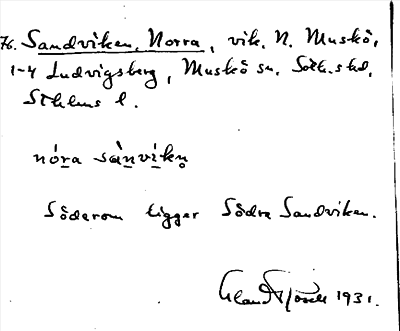 76. Sandviken, Norra, vik. N. Muskö,
1-4 Ludvigsberg, Muskö sn. Söt.skd.
Sthlms l.
nóra sànvíkn̥
Söderom ligger Södra Sandviken.
1931.